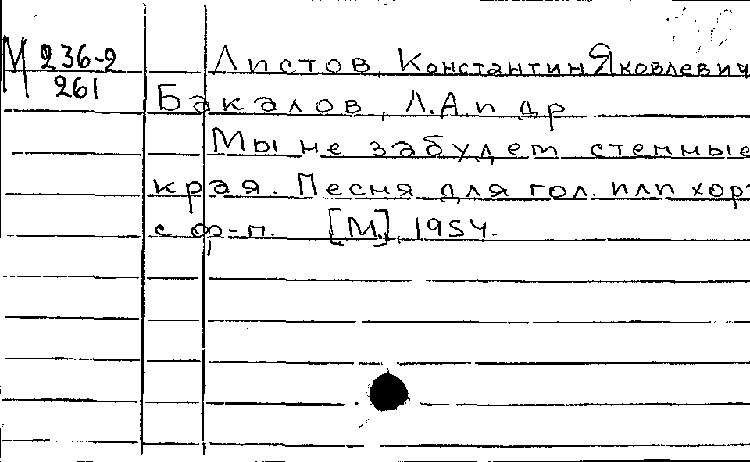 М 236-2
261
Листов, Константин Яковлевич
Бакалов, Л.А. и др
Мы не забудем степные
края. Песня для гол. или хора
с ф-п. [М.], 1954.